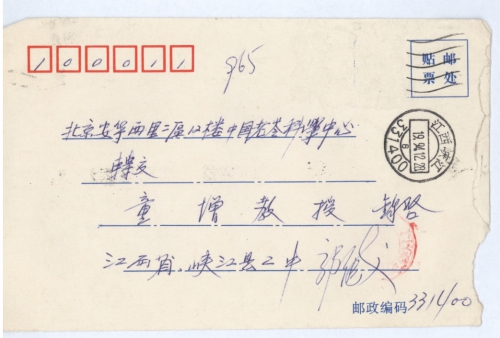 100011
965
贴邮
票处
北京安华西里二区12楼中国老龄科学中心
转交
江西峡江
19.94.12.28
6
331400
童增教授 钧启
江西省峡江县二中
邮政编码331400